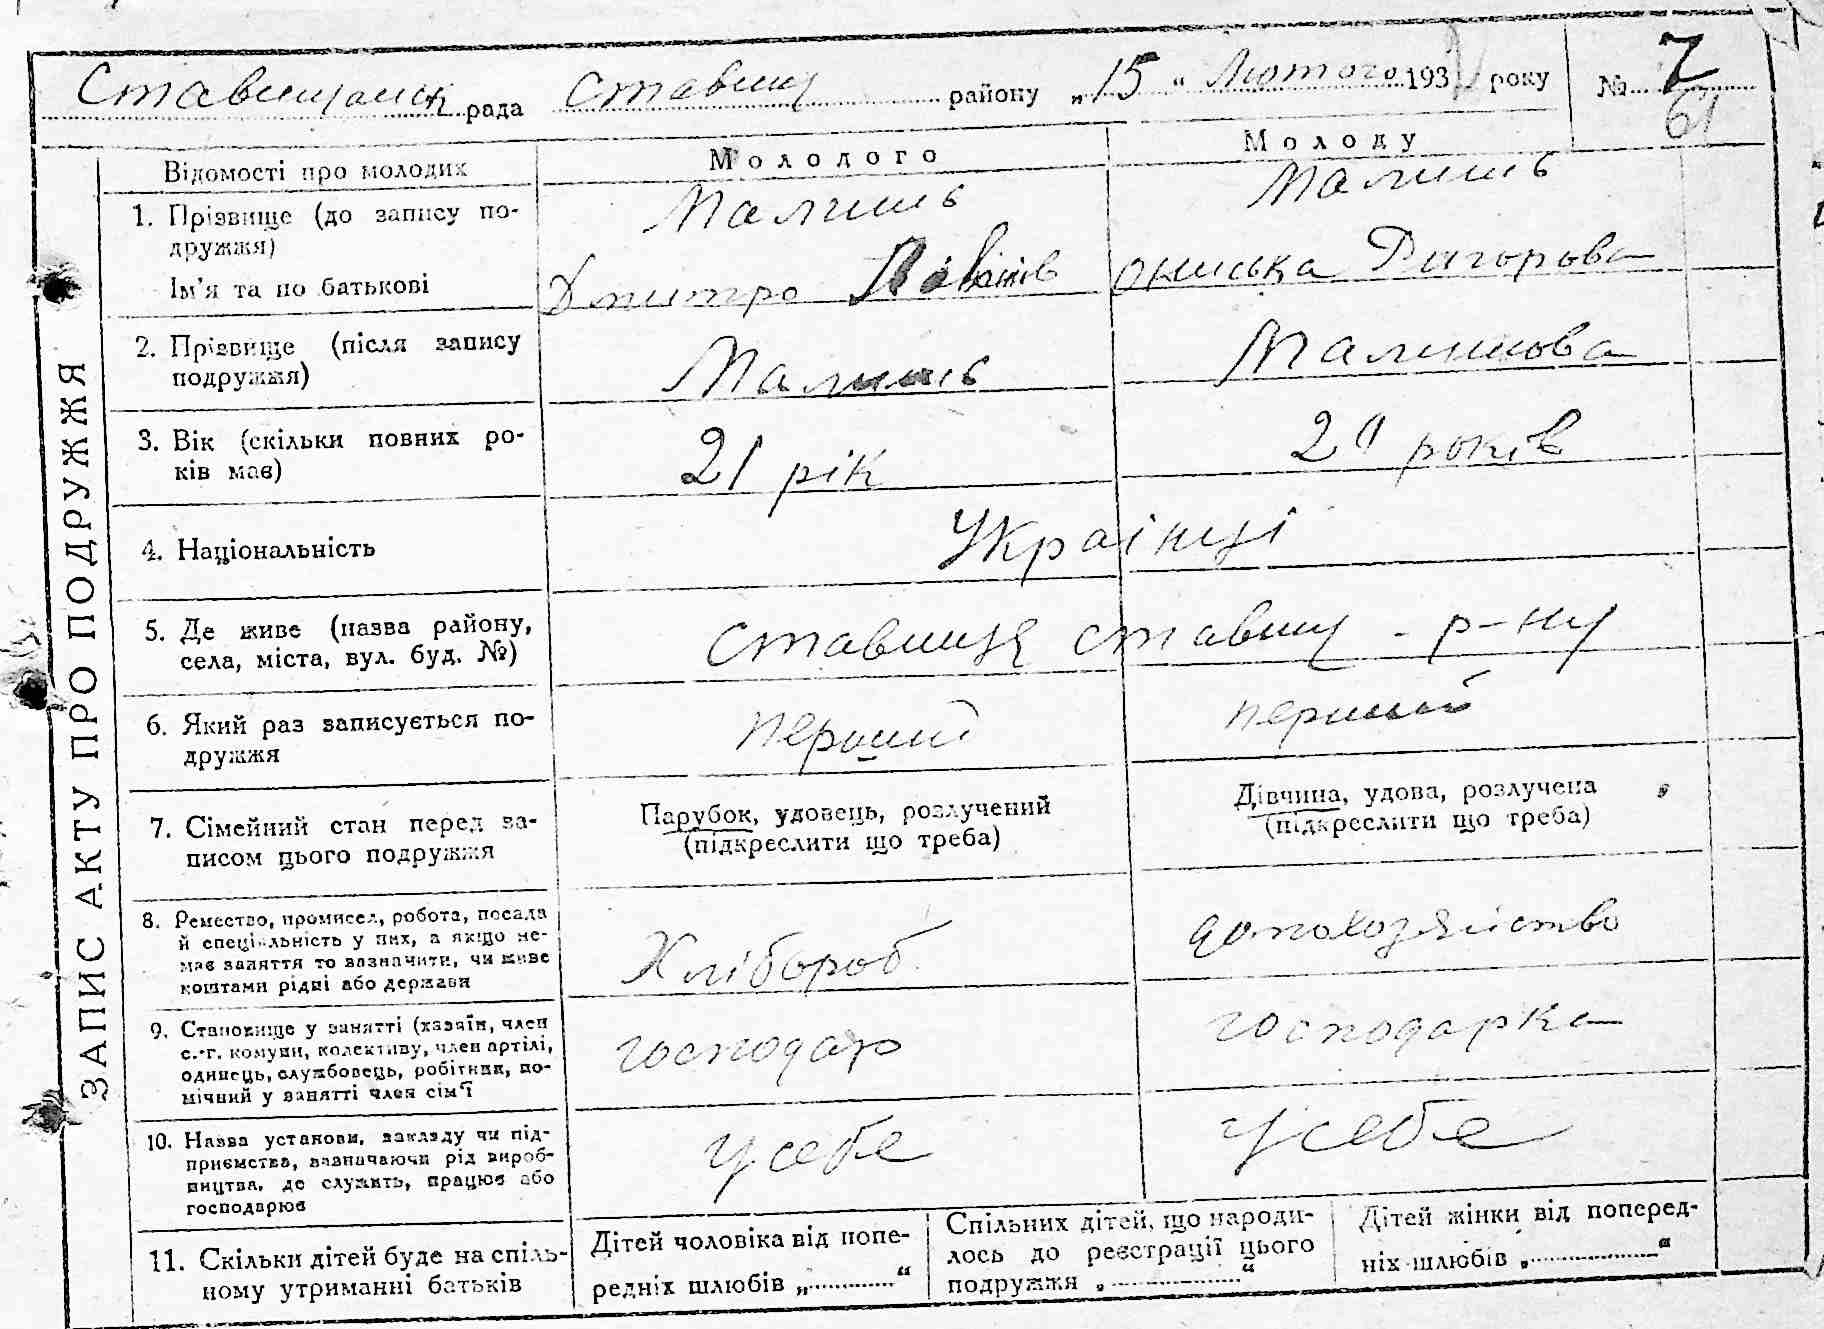 Ставищанськ рада Ставищ району „15“ Лютого 193 року № 7
61
ЗАПИС АКТУ ПРО ПОДРУЖЖЯ
Відомості про молодих Молодого Молоду
1. Прізвище (до запису по- Малиш Малиш
дружжя)
Ім'я та по батькові Дмитро Ониська Григорова
2. Прізвище (після запису Малиш Малишова
подружжя)
3. Вік (скільки повних ро- 21 рік років
ків має)
4. Національність Українці
5. Де живе (назва району, Ставище Ставищ - р-ну
села, міста, вул. буд. №)
6. Який раз записується по- перший перший
дружжя
7. Сімейний стан перед за- Парубок, удовець, розлучений Дівчина, удова, розлучена
писом цього подружжя (підкреслити що треба) (підкреслити що треба)
8. Ремество, промисел, робота, посада
й спеціяльність у них, а якщо не- Хлібороб домохозяйство
має заняття то зазначити, чи живе
коштами рідні або держави
9. Становище у занятті (хазяїн, член
с.-г. комуни, колективу, член артілі, господар господарка
одинець, службовець, робітник, по-
мічний у занятті член сім'ї
10. Назва установи, закладу чи під-
приємства, зазначаючи рід вироб- у себе у себе
ництва, де служить, працює або
господарює
11. Скільки дітей буде на спіль-
ному утриманні батьків
Дітей чоловіка від попе-
редніх шлюбів „ “
Спільних дітей, що народи-
лось до реєстрації цього
подружжя „ “
Дітей жінки від поперед-
ніх шлюбів „ “